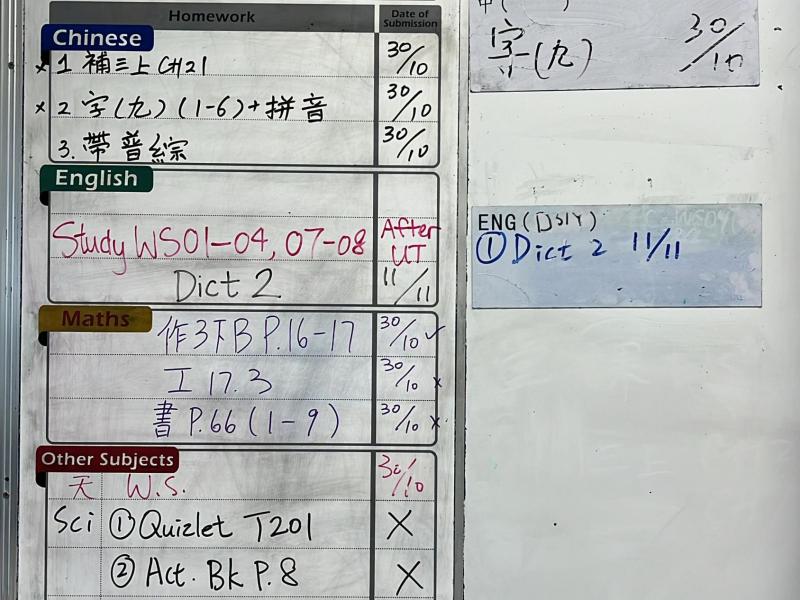 Homework Date of Submission
Chinese
x 1 補三上 CH21 30/10
x 2 字(九) (1-6)+拼音 30/10
3. 帶普綜 30/10
English
Study WS01-04, 07-08 After UT
Dict 2 11/11
Maths
作3下B P.16-17 30/10 ✓
工 17.3 30/10 x
書 P.66 (1-9) 30/10 x
Other Subjects
天 W.S. 30/10
Sci ① Quizlet T201 X
② Act. Bk P.8 X
字(九) 30/10
ENG
① Dict 2 11/11